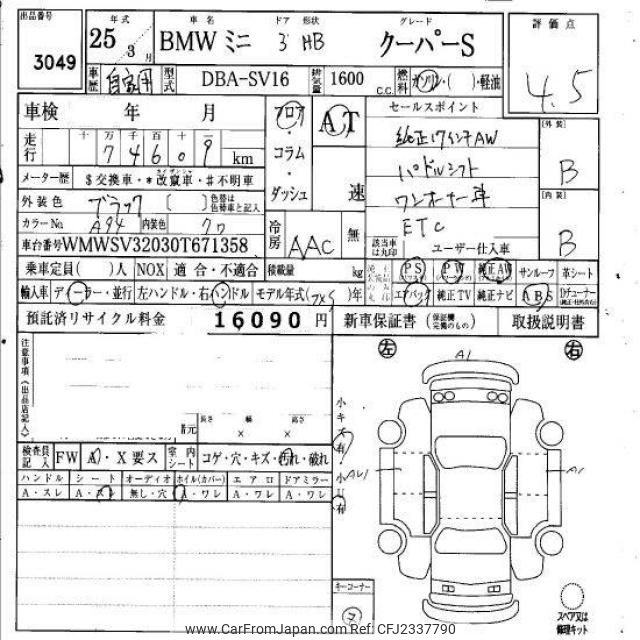 出品番号
3049
年式
25年3月
車名
BMW ミニ
ドア 形状
3 HB
グレード
クーパーS
評価点
4.5
車歴
自家用
型式
DBA-SV16
排気量
1600 c.c.
燃料
ガソリン・( )・軽油
車検 年 月
走行
十万千百十一
7 4 6 0 9 km
フロア・コラム・ダッシュ
AT
速
セールスポイント
純正17インチAW
パドルシフト
ワンオーナー車
ETC
[外装]
B
[内装]
B
メーター歴
$交換車・*改竄車・#不明車
外装色
ブラック
[ ]
色替は色替車と記入
カラーNo.
A94
内装色
クロ
冷房
AAC
無
該当車は丸印
ユーザー仕入車
車台番号WMWSV32030T671358
乗車定員( )人
NOX 適合・不適合
積載量 kg
PS
PW
純正AW
サンルーフ
革シート
輸入車
ディーラー・並行
左ハンドル・右ハンドル
モデル年式( )年
エアバック
純正TV
純正ナビ
ABS
Dチューナー
預託済リサイクル料金
16090円
新車保証書(保証欄完備のもの)
取扱説明書
注意事項(出品店記入)
左
右
A1
長さ × 幅 × 高さ
小キズ有
小U有
AU1
A1
検査員記入
FW
A・X要ス
室内シート
コゲ・穴・キズ・汚れ・破れ
ハンドル
シート
オーディオ
ホイル(カバー)
エアロ
ドアミラー
A・スレ
A・スレ
無し・穴
A・ワレ
A・ワレ
A・ワレ
キーコーナー
スペア又は修理キット
www.CarFromJapan.com Ref: CFJ2337790